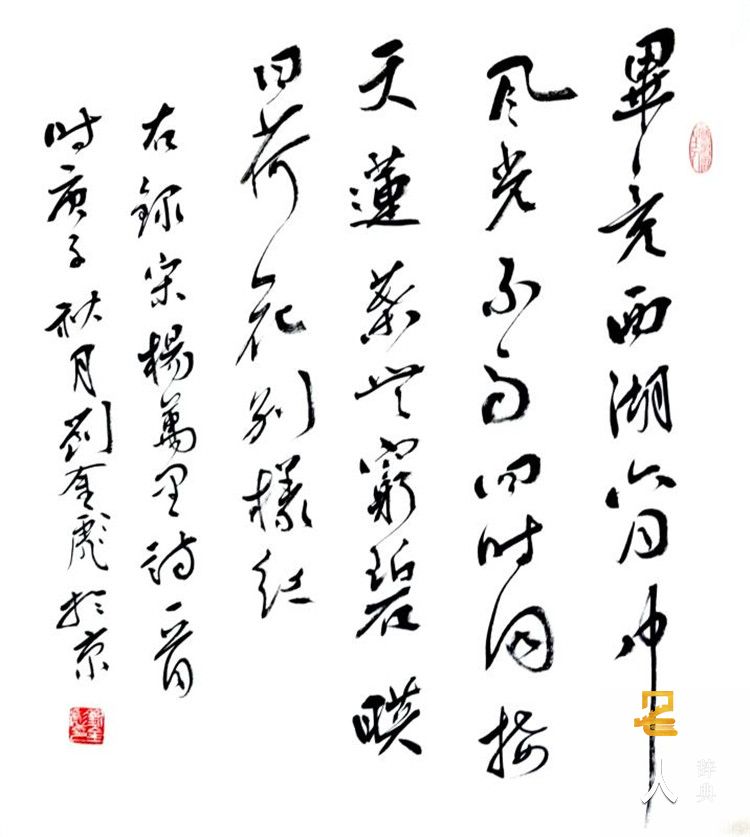 畢竟西湖六月中
风光不与四时同接
天蓮葉無窮碧映
日荷花别樣红
右録宋楊萬里詩一首
时庚子秋月劉奎彪於京
名人
辞典